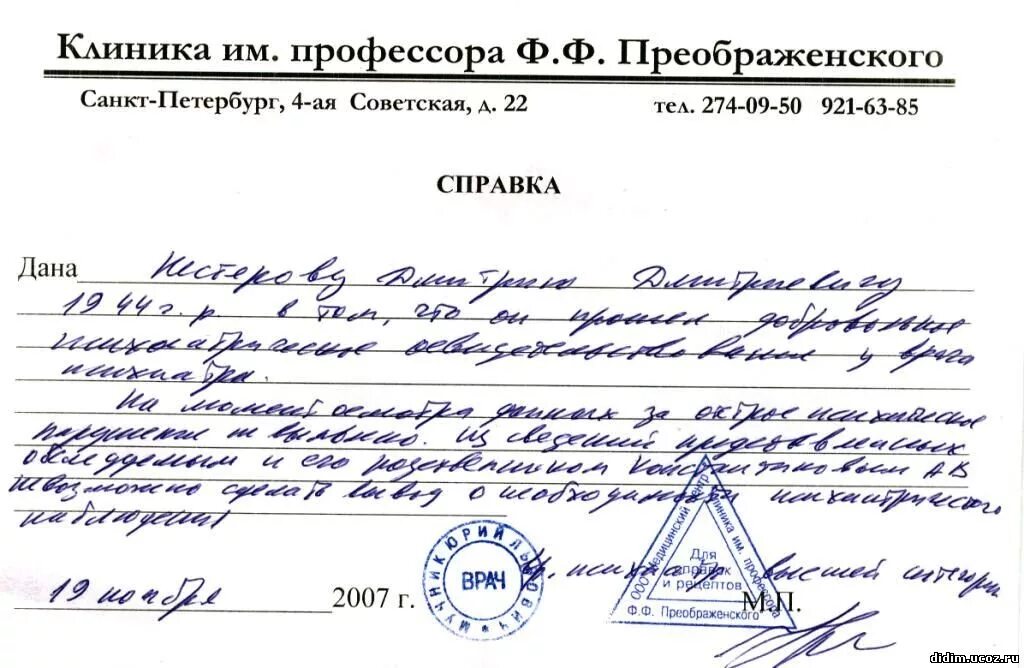 Клиника им. профессора Ф.Ф. Преображенского
Санкт-Петербург, 4-ая Советская, д. 22 тел. 274-09-50 921-63-85
СПРАВКА
Дана Нестерову Дмитрию Дмитриевичу
1944 г.р. в том, что он прошел добровольное
психиатрическое освидетельствование у врача
психиатра.
На момент осмотра данных за острые психические
нарушения не выявлено. Из сведений представленных
обследуемым и его родственником Константиновым А В
невозможно сделать вывод о необходимости психиатрического
наблюдения
19 ноября 2007 г.
МУЧНИК ЮРИЙ ЛЬВОВИЧ
ВРАЧ
ООО Медицинский центр Клиника им. профессора
Ф.Ф. Преображенского
Для
справок
и рецептов
Вр. психиатр высшей категории
М.П.
didim.ucoz.ru